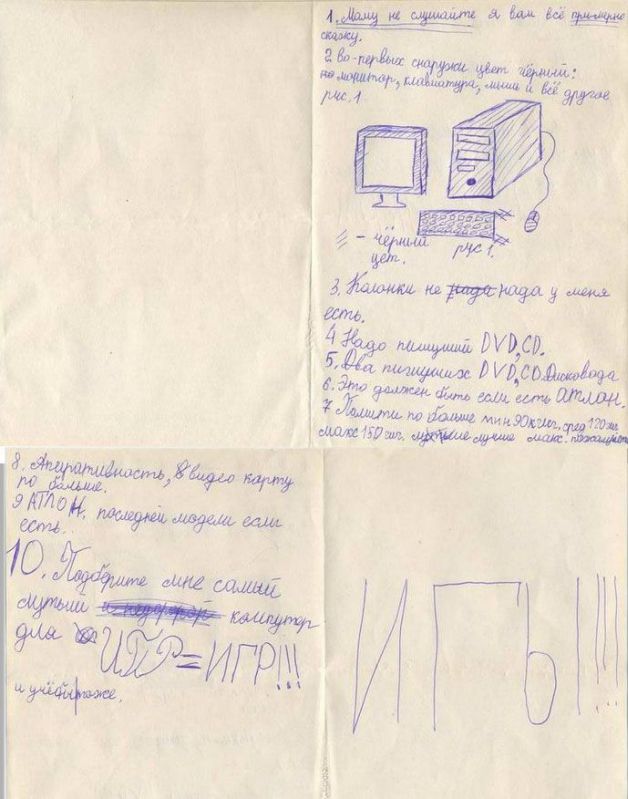 1. Маму не слушайте я вам всё примерно
скажу.
2 Во-первых снаружи цвет чёрный:
монитор, клавиатура, мыша и всё другое
рис. 1.
– чёрный
цет.
рис 1.
3. Колонки не нада у меня
есть.
4 Надо пишущий DVD, CD.
5. Два пишущих DVD, CD. Дисковода
6. Это должен быть если есть АТЛОН.
7 Памяти по больше мин 90 гиг. сред 120 гиг
макс 150 гиг. лучше макс. пожалуйста
8. Аперативность, в видео карту
по больше.
9 АТЛОН. последней модели если
есть..
10. Подберите мне самый
лутьий компутор
для
ИГР = ИГР!!!
и учёбы тоже.
ИГЫ!!!